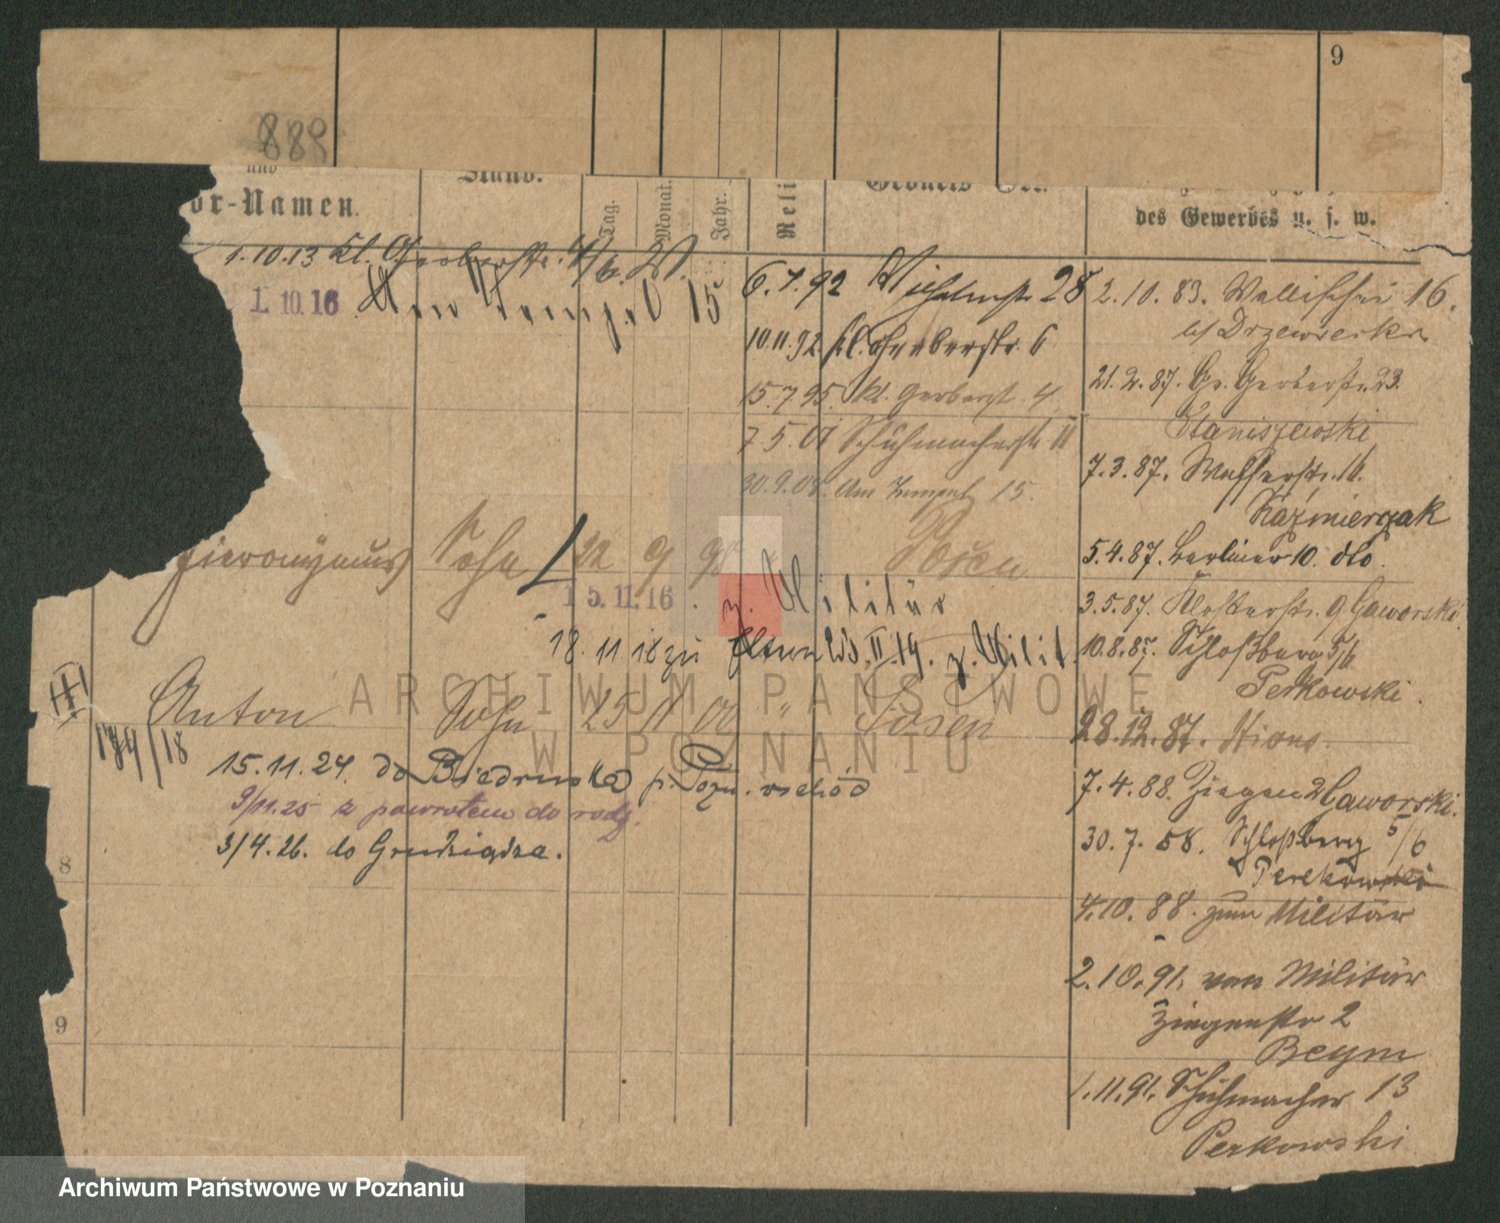 9
889
und
or-Namen.
Stand.
Tag.
Monat.
Jahr.
Reli
Geburts
des Gewerbes u. s. w.
1.10.13 Kl. Gerberstr.
1. 10. 16 Am Tempel 15
6.7.92 Wilhelmstr 28
10.11.92 Kl. Gerberstr. 6
15.7.95. Kl. Gerberst. 4
7.5.01 Schuhmacherstr 11
30.9.08. Am Tempel 15.
2.10.83. Wallischei 16.
b/ Drzewiecki
21.2.87. Gr. Gerberstr. 23.
Staniszewski
7.3.87. Wasserstr. 16.
Kaźmierczak
5.4.87. Berliner 10. dto.
3.5.87. Klosterstr. 9 Gaworski.
10.8.87. Schloßberg 5/6
Perkowski.
28.12.87.
7.4.88. Ziegen 2 Gaworski.
30.7.88. Schloßberg 5/6
Perekowski
4.10.88. zum Militär
2.10.91. von Militär
Ziegenstr 2
Beym
1.11.91. Schuhmacher 13
Perkowski
Hieronymus Sohn 22 9 98 Posen
15.11.16. z. Militär
18. 11 18 zu II. 14. z. Milit.
Anton Sohn 25 11 00 " Posen
184/18
15.11.24. do Biedruska p. Pozn. wschód
9/11.25 z powrotem do rodz.
3/4.26. do Grudziądza.
8
9
ARCHIWUM PAŃSTWOWE
W POZNANIU
Archiwum Państwowe w Poznaniu